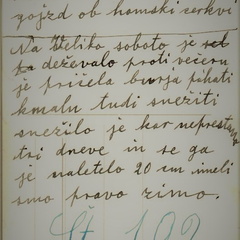 gojzd ob homski cerkvi
Na Veliko soboto je
deževalo proti večeru
je pričela burja pihati
kmalu tudi snežiti
snežilo je kar neprestano
tri dneve in se ga
je naletelo 20 cm imeli
smo pravo zimo.
Št. 102